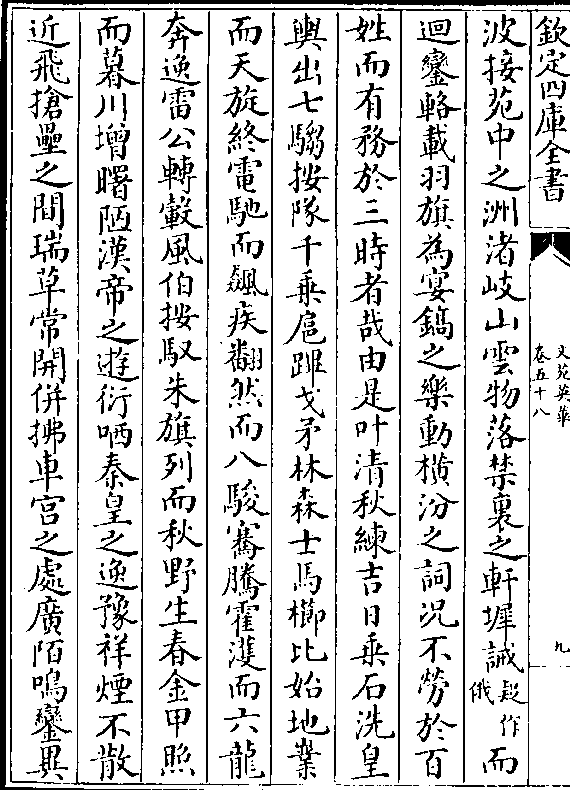 欽定四庫全書
文苑英華
卷五十八
九
波接苑中之洲渚岐山雲物落禁裏之軒墀誠疑作俄而
迴鑾輅載羽旗為宴鎬之樂動橫汾之詞況不勞於百
姓而有務於三時者哉由是叶清秋練吉日乗石洗皇
輿出七騶按隊千乗扈蹕戈矛林森士馬櫛比始地業
而天旋終電馳而飇疾翻然而八駿騫騰霍濩而六龍
奔逸雷公轉轂風伯按馭朱旗列而秋野生春金甲照
而暮川增曙陋漢帝之遊衍哂秦皇之逸豫祥煙不散
近飛搶壘之間瑞草常開併拂車宫之處廣陌鳴鑾異